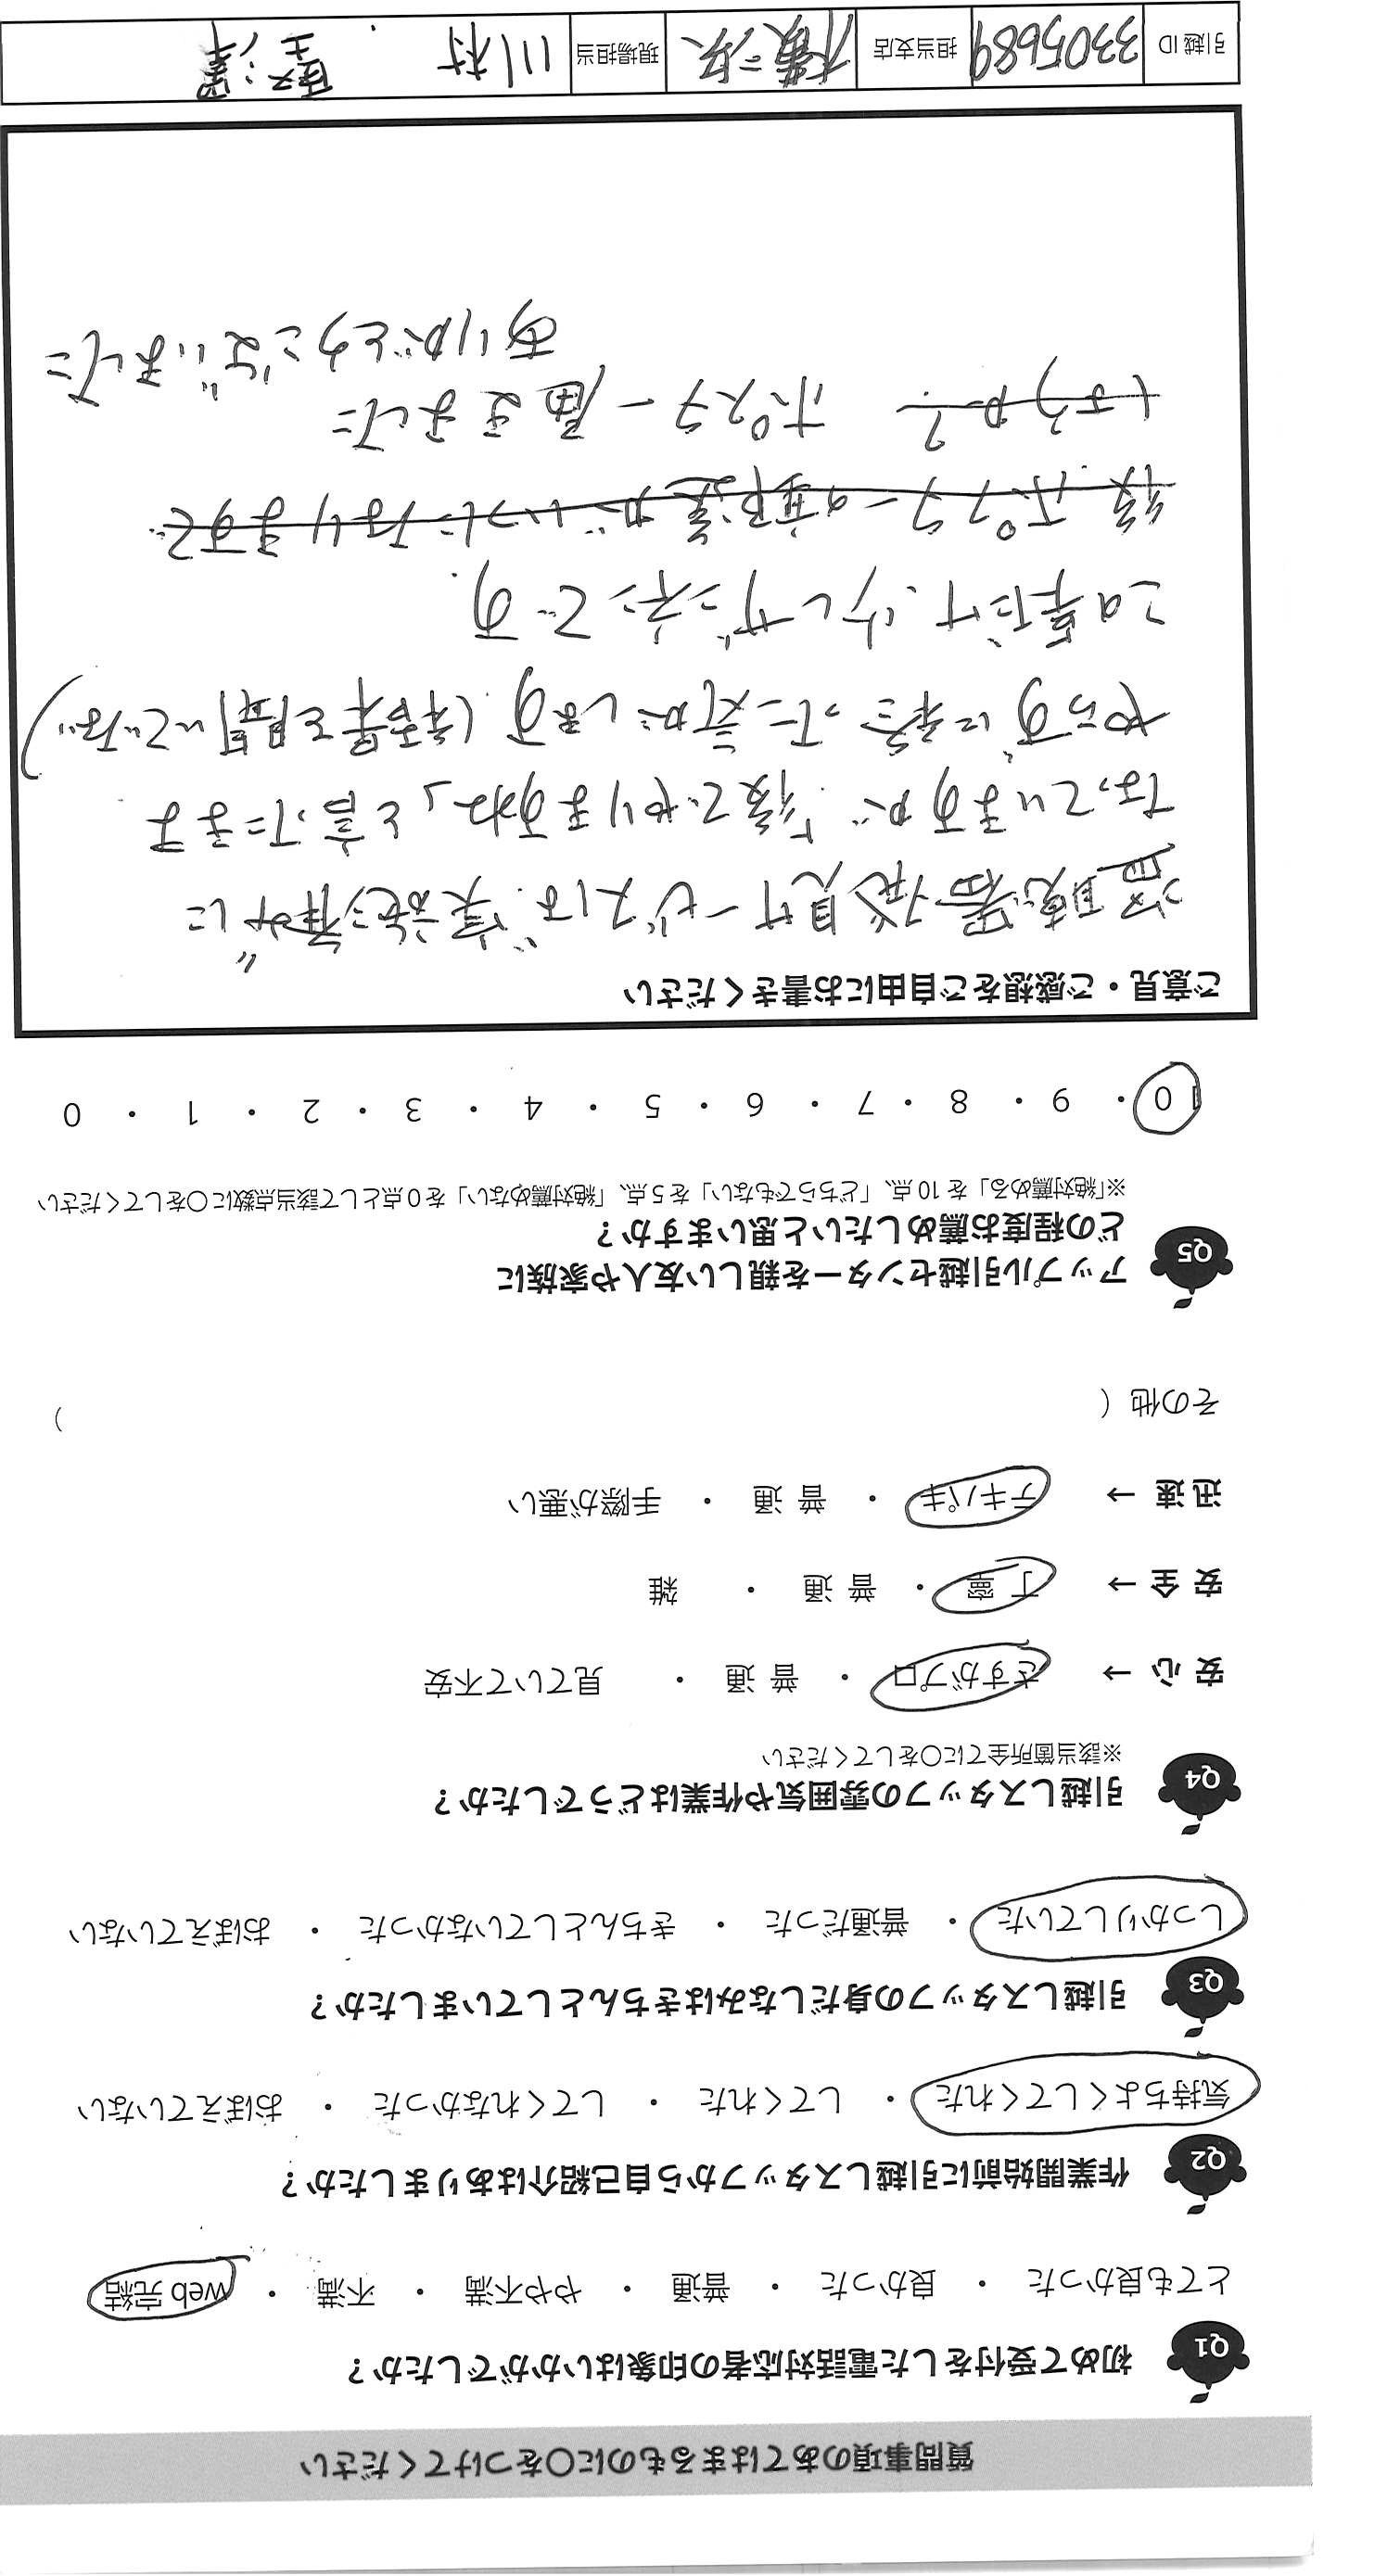 質問事項のあてはまるものに○をつけてください
Q1 初めて受付をした電話対応者の印象はいかがでしたか？
とても良かった ・ 良かった ・ 普通 ・ やや不満 ・ 不満 ・ web 完結
Q2 作業開始前に引越しスタッフから自己紹介はありましたか？
気持ちよくしてくれた ・ してくれた ・ してくれなかった ・ おぼえていない
Q3 引越しスタッフの身だしなみはきちんとしていましたか？
しっかりしていた ・ 普通だった ・ きちんとしていなかった ・ おぼえていない
Q4 引越しスタッフの雰囲気や作業はどうでしたか？
※該当箇所全てに○をしてください
安 心 → さすがプロ ・ 普 通 ・ 見ていて不安
安 全 → 丁 寧 ・ 普 通 ・ 雑
迅 速 → テキパキ ・ 普 通 ・ 手際が悪い
その他（ ）
Q5 アップル引越センターを親しい友人や家族に
どの程度お薦めしたいと思いますか？
※「絶対薦める」を 10 点、「どちらでもない」を 5 点、「絶対薦めない」を 0 点として該当点数に○をしてください
10 ・ 9 ・ 8 ・ 7 ・ 6 ・ 5 ・ 4 ・ 3 ・ 2 ・ 1 ・ 0
ご意見・ご感想をご自由にお書きください
盗聴器発見サービスは"実施済み"に
なっていますが「後でやりますね」と言ったまま
やらずに終わった気がします（結果を聞いていない）
この事だけ、少しザンネンです
後ポスターの郵送がいつになりますで
しょうか？ ポスター届きました
ありがとうございました
引越 ID 3305689 担当支店 横浜 現場担当 川村